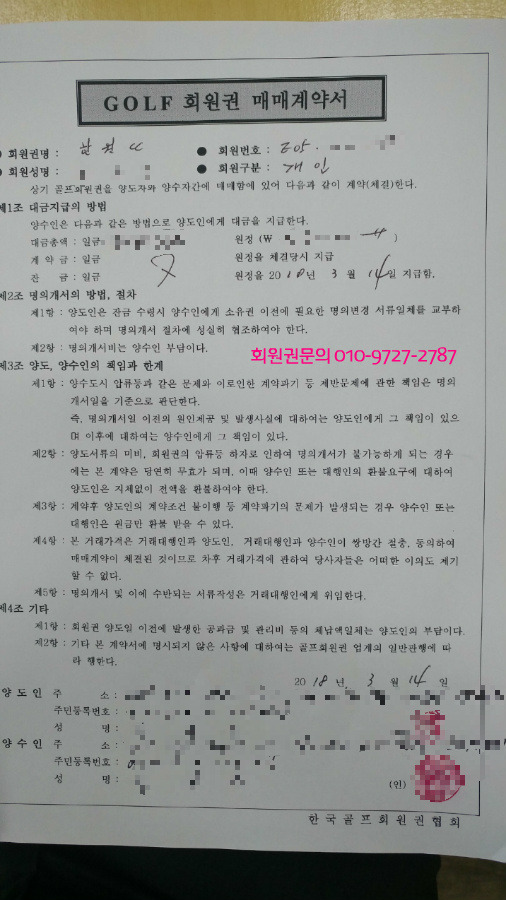 GOLF 회원권 매매계약서
회원권명 : ● 회원번호 :
회원성명 : ● 회원구분 : 개인
상기 골프회원권을 양도자와 양수자간에 매매함에 있어 다음과 같이 계약(체결)한다.
제1조 대금지급의 방법
양수인은 다음과 같은 방법으로 양도인에게 대금을 지급한다.
대금총액 : 일금 원정 (₩ )
계 약 금 : 일금 원정을 체결당시 지급
잔 금 : 일금 원정을 2018년 3월 14일 지급함.
제2조 명의개서의 방법, 절차
제1항 : 양도인은 잔금 수령시 양수인에게 소유권 이전에 필요한 명의변경 서류일체를 교부하
여야 하며 명의개서 절차에 성실히 협조하여야 한다.
제2항 : 명의개서비는 양수인 부담이다.
회원권문의 010-9727-2787
제3조 양도, 양수인의 책임과 한계
제1항 : 양수도시 압류등과 같은 문제와 이로인한 계약파기 등 제반문제에 관한 책임은 명의
개서일을 기준으로 판단한다.
즉, 명의개서일 이전의 원인제공 및 발생사실에 대하여는 양도인에게 그 책임이 있으
며 이후에 대하여는 양수인에게 그 책임이 있다.
제2항 : 양도서류의 미비, 회원권의 압류등 하자로 인하여 명의개서가 불가능하게 되는 경우
에는 본 계약은 당연히 무효가 되며, 이때 양수인 또는 대행인의 환불요구에 대하여
양도인은 지체없이 전액을 환불하여야 한다.
제3항 : 계약후 양도인의 계약조건 불이행 등 계약파기의 문제가 발생되는 경우 양수인 또는
대행인은 원금만 환불 받을 수 있다.
제4항 : 본 거래가격은 거래대행인과 양도인, 거래대행인과 양수인이 쌍방간 절충, 동의하여
매매계약이 체결된 것이므로 차후 거래가격에 관하여 당사자들은 어떠한 이의도 제기
할 수 없다.
제5항 : 명의개서 및 이에 수반되는 서류작성은 거래대행인에게 위임한다.
제4조 기타
제1항 : 회원권 양도일 이전에 발생한 공과금 및 관리비 등의 체납액일체는 양도인의 부담이다.
제2항 : 기타 본 계약서에 명시되지 않은 사항에 대하여는 골프회원권 업계의 일반관행에 따
라 행한다.
2018년 3월 14일
양 도 인 주 소 :
주민등록번호 :
성 명 :
양 수 인 주 소 :
주민등록번호 :
성 명 : (인)
한국골프회원권협회